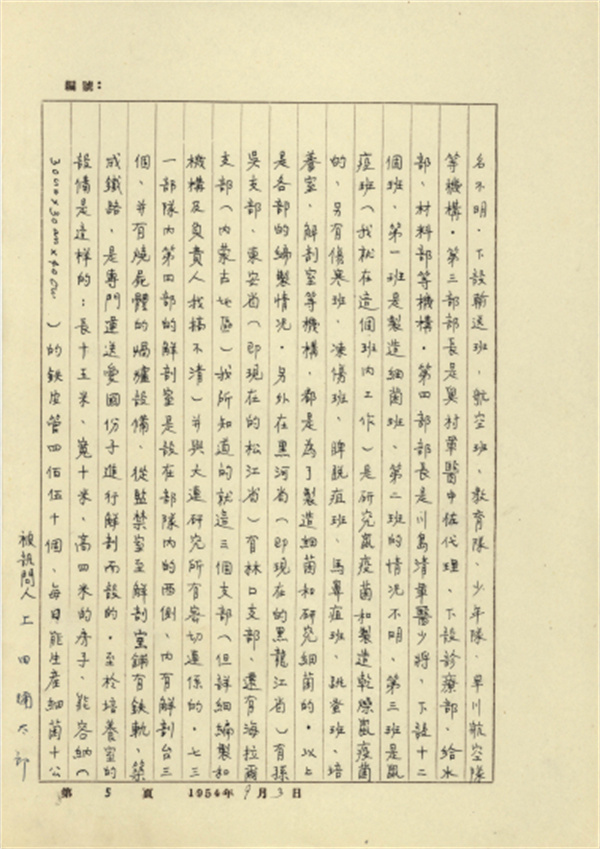 編號：
名不明．下設輸送班、航空班、教育隊、少年隊、早川航空隊
等機構．第三部部長是奥村軍醫中佐代理、下設診療部、給水
部、材料部等機構．第四部部長是川島清軍醫少將、下設十二
個班、第一班是製造細菌班、第二班的情況不明、第三班是鼠
疫班（我就在這個班內工作）是研究鼠疫菌和製造乾燥鼠疫菌
的、另有傷寒班、凍傷班、脾脱疽班、馬鼻疽班、跳蚤班、培
養室、解剖室等機構、都是為了製造細菌和研究細菌的．以上
是各部的編製情况．另外在黑河省（即現在的黑龍江省）有孫
吳支部、東安省（即現在的松江省）有林口支部、還有海拉爾
支部（內蒙古地區）我所知道的就這三個支部（但詳細編製和
機構及負責人我搞不清）并與大連研究所有密切連係的．七三
一部隊內第四部的解剖室是設在部隊內的西側、內有解剖台三
個、并有燒屍體的鍋爐設備、從監禁室至解剖室鋪有鉄軌、築
成鐵路、是專門運送愛國份子進行解剖而設的．至於培養室的
設備是這樣的：長十五米、寬十米、高四米的房子、能容納（
30cm×30cm×40cm）的鉄皮管四佰伍十個、每日能生產細菌十公
被訊問人 上田彌太郎
第 5 頁 1954年9月3日